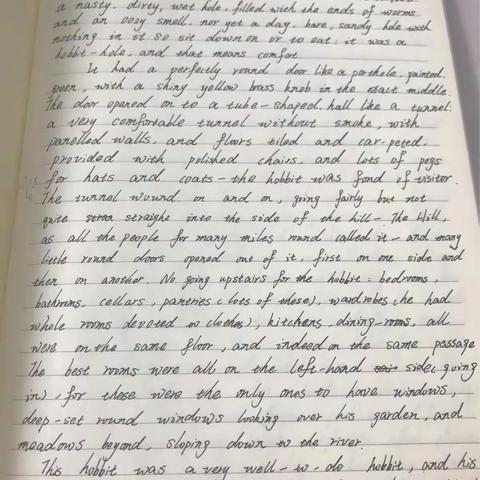 a nasty, dirty, wet hole, filled with the ends of worms
and an oozy smell, nor yet a day, bare, sandy hole with
nothing in it so sit down on or to eat: it was a
hobbit-hole, and that means comfort.
It had a perfectly round door like a porthole, painted
green, with a shiny yellow brass knob in the exact middle.
The door opened on to a tube-shaped hall like a tunnel:
a very comfortable tunnel without smoke, with
panelled walls, and floors tiled and car-peted.
provided with polished chairs, and lots of pegs
for hats and coats - the hobbit was fond of visitor.
The tunnel wound on and on, going fairly but not
quite straight into the side of the hill - The Hill,
as all the people for many miles round called it - and many
little round doors opened out of it, first on one side and
then on another. No going upstairs for the hobbit: bedrooms,
bathrooms, cellars, pantries (lots of these), wardrobes (he had
whole rooms devoted to clothes), kitchens, dining-rooms, all
were on the same floor, and indeed on the same passage
The best rooms were all on the left-hand side (going
in), for these were the only ones to have windows,
deep-set round windows looking over his garden, and
meadows beyond, sloping down to the river.
This hobbit was a very well-to-do hobbit, and his